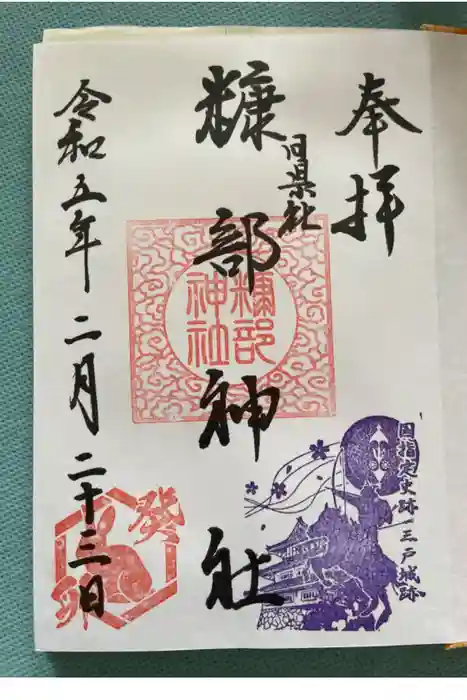 奉拝
旧県社
糠部神社
糠部神社
国指定史跡 三戸城跡
令和五年二月二十三日
癸卯